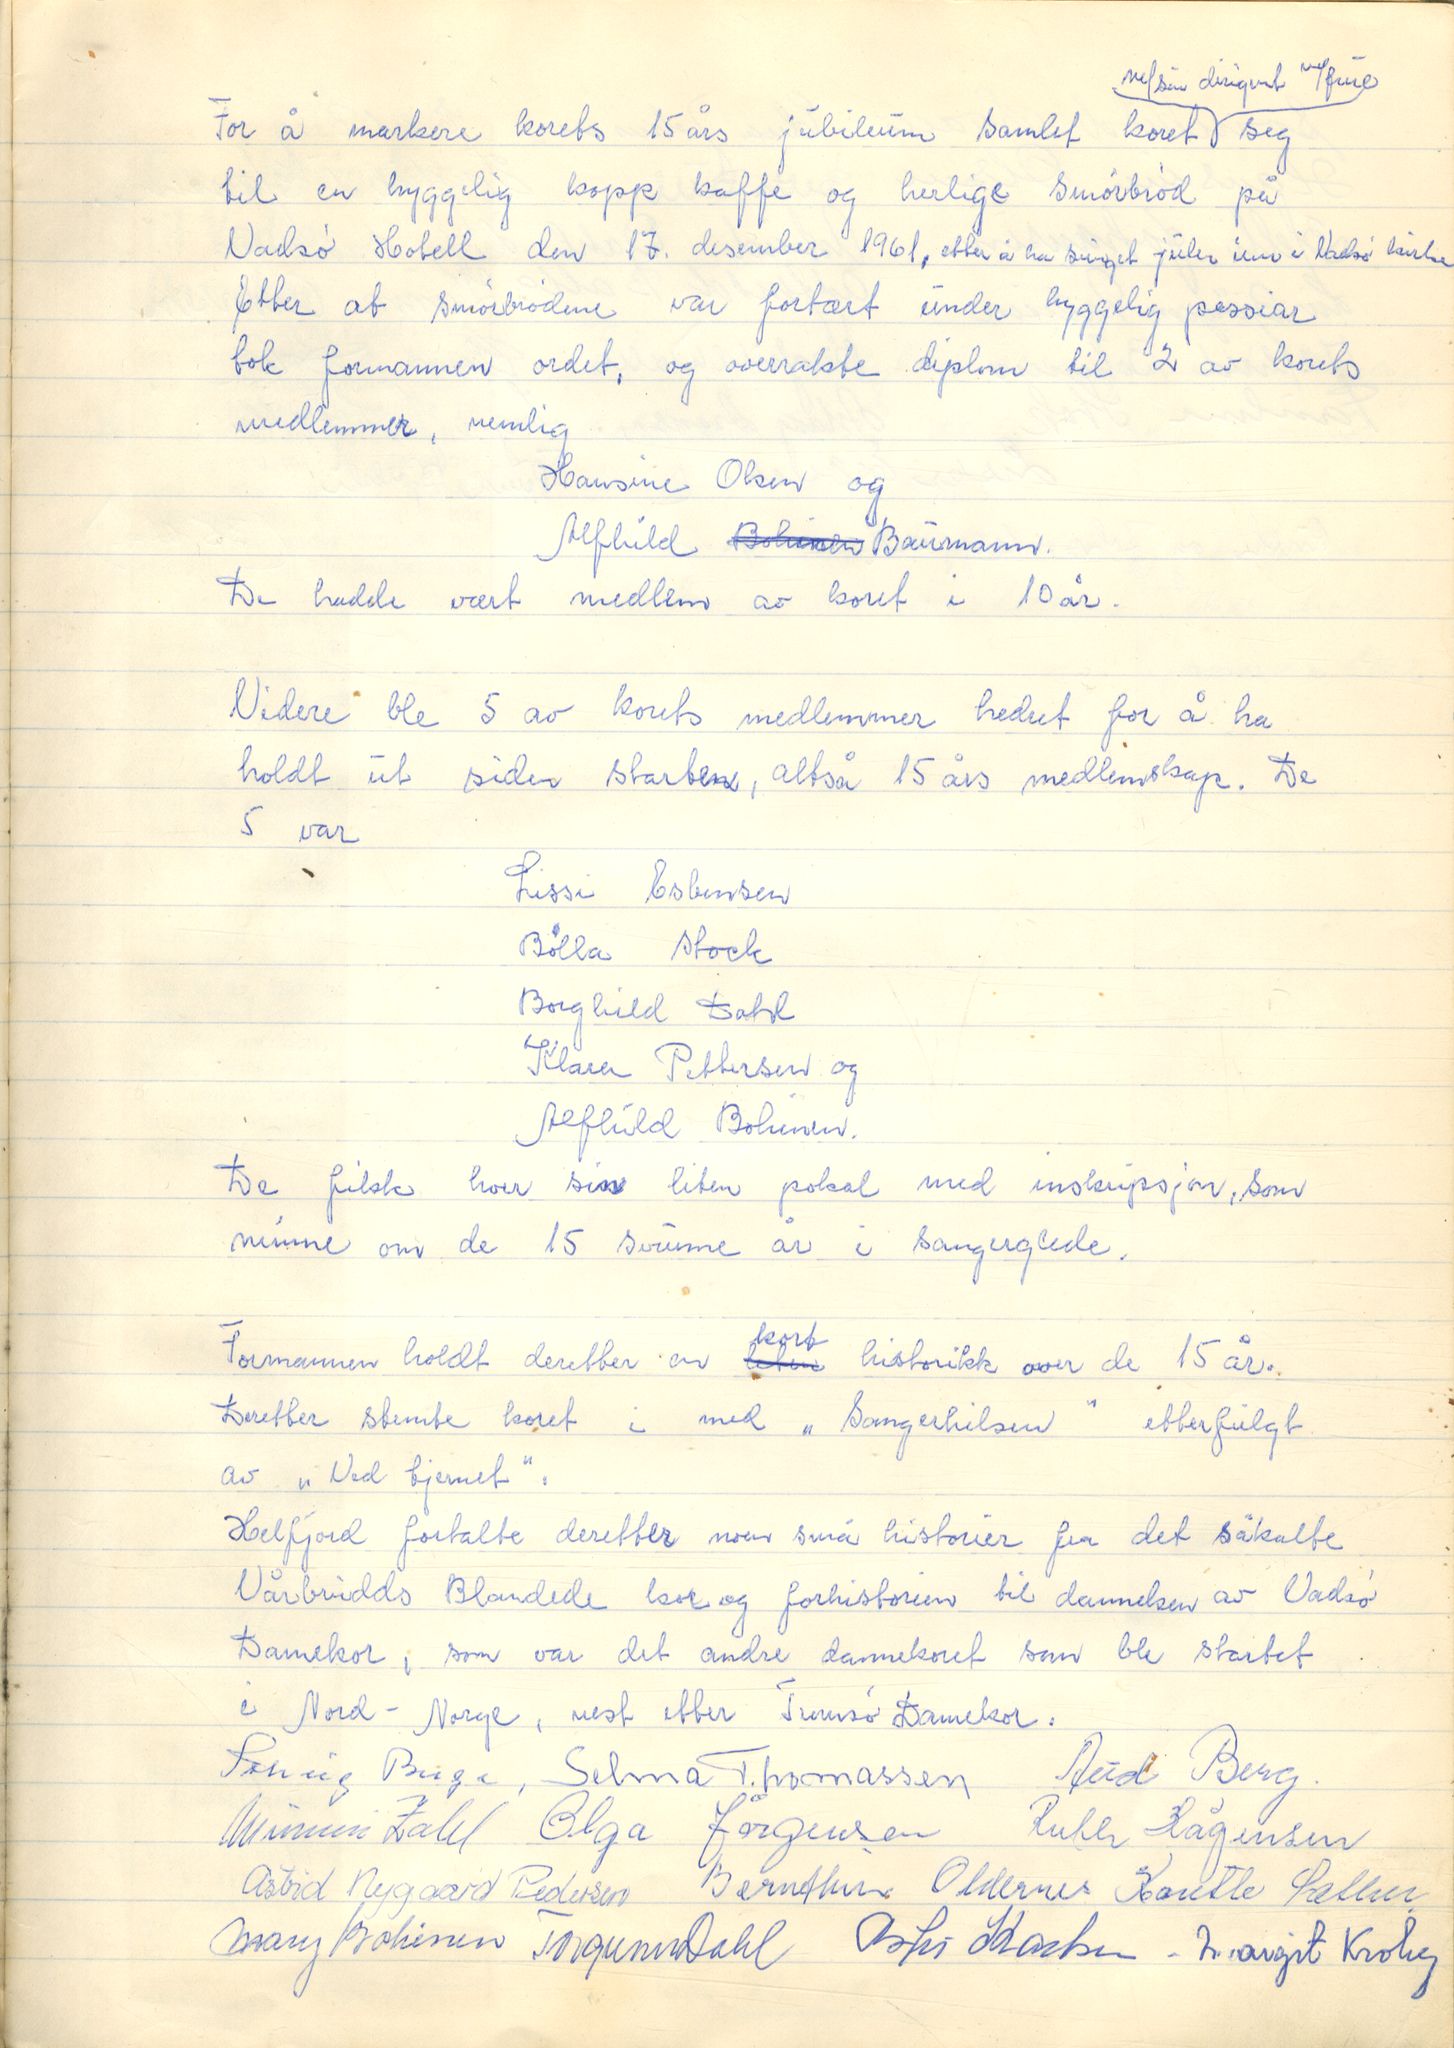 m/sin dirigent m/frue
For å markere korets 15 års jubileum samlet koret seg
til en hyggelig kopp kaffe og herlige smørbrød på
Vadsø Hotell den 17. desember 1961, etter å ha sunget julen inn i Vadsø kirke
Etter at smørbrødene var fortært under hyggelig passiar
tok formannen ordet, og overrakte diplom til 2 av korets
medlemmer, nemlig
Hansine Olsen og
Alfhild Bohinen Baumann.
De hadde vært medlem av koret i 10 år.
Videre ble 5 av korets medlemmer hedret for å ha
holdt ut siden starten, altså 15 års medlemskap. De
5 var
Lissi Esbensen
Bølla Stock
Borghild Dahl
Klara Pettersen og
Alfhild Bohinen.
De fikk hver sin liten pokal med inskripsjon, som
minne om de 15 svunne år i sangerglede.
kort
Formannen holdt deretter en liten historikk over de 15 år.
Deretter stemte koret i med „Sangerhilsen" etterfulgt
av „Ved tjernet".
Helfjord fortalte deretter noen små historier fra det såkalte
Vårbrudds Blandede kor og forhistorien til dannelsen av Vadsø
Damekor, som var det andre damekoret som ble startet
i Nord-Norge, nest etter Tromsø Damekor.
Solveig Selma Thomassen Aud Berg.
Mimmi Zahl Olga Jørgensen Ruth Hågensen
Astrid Nygaard Pedersen Oldernes
Mary Bohinen Torgunn Dahl Margit Krohg